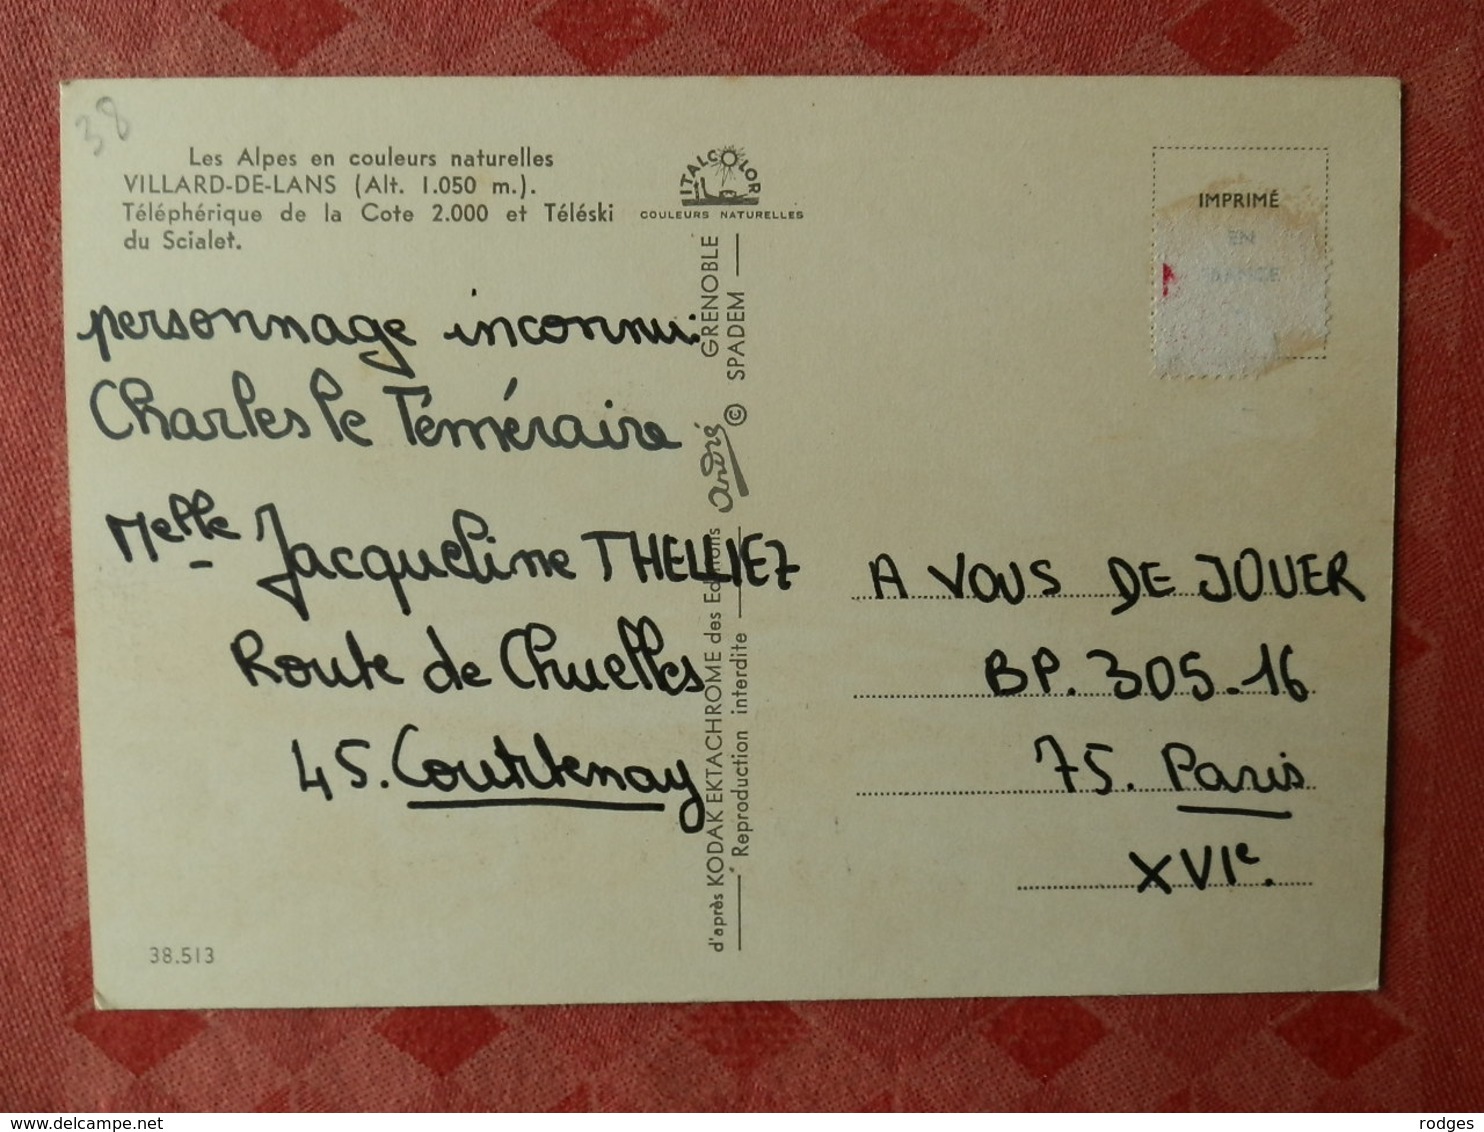 38
Les Alpes en couleurs naturelles
VILLARD-DE-LANS (Alt. 1.050 m.).
Téléphérique de la Cote 2.000 et Téléski
du Scialet.
ITALCOLOR
COULEURS NATURELLES
IMPRIMÉ
EN
FRANCE
personnage inconnu:
Charles le Téméraire
Melle Jacqueline THELLIEZ
Route de Chuelles
45. Courtenay
d'après KODAK EKTACHROME des Editions André GRENOBLE
Reproduction interdite © SPADEM
A VOUS DE JOUER
BP. 305.16
75. Paris
XVIe.
38.513
delcampe.net
rodges